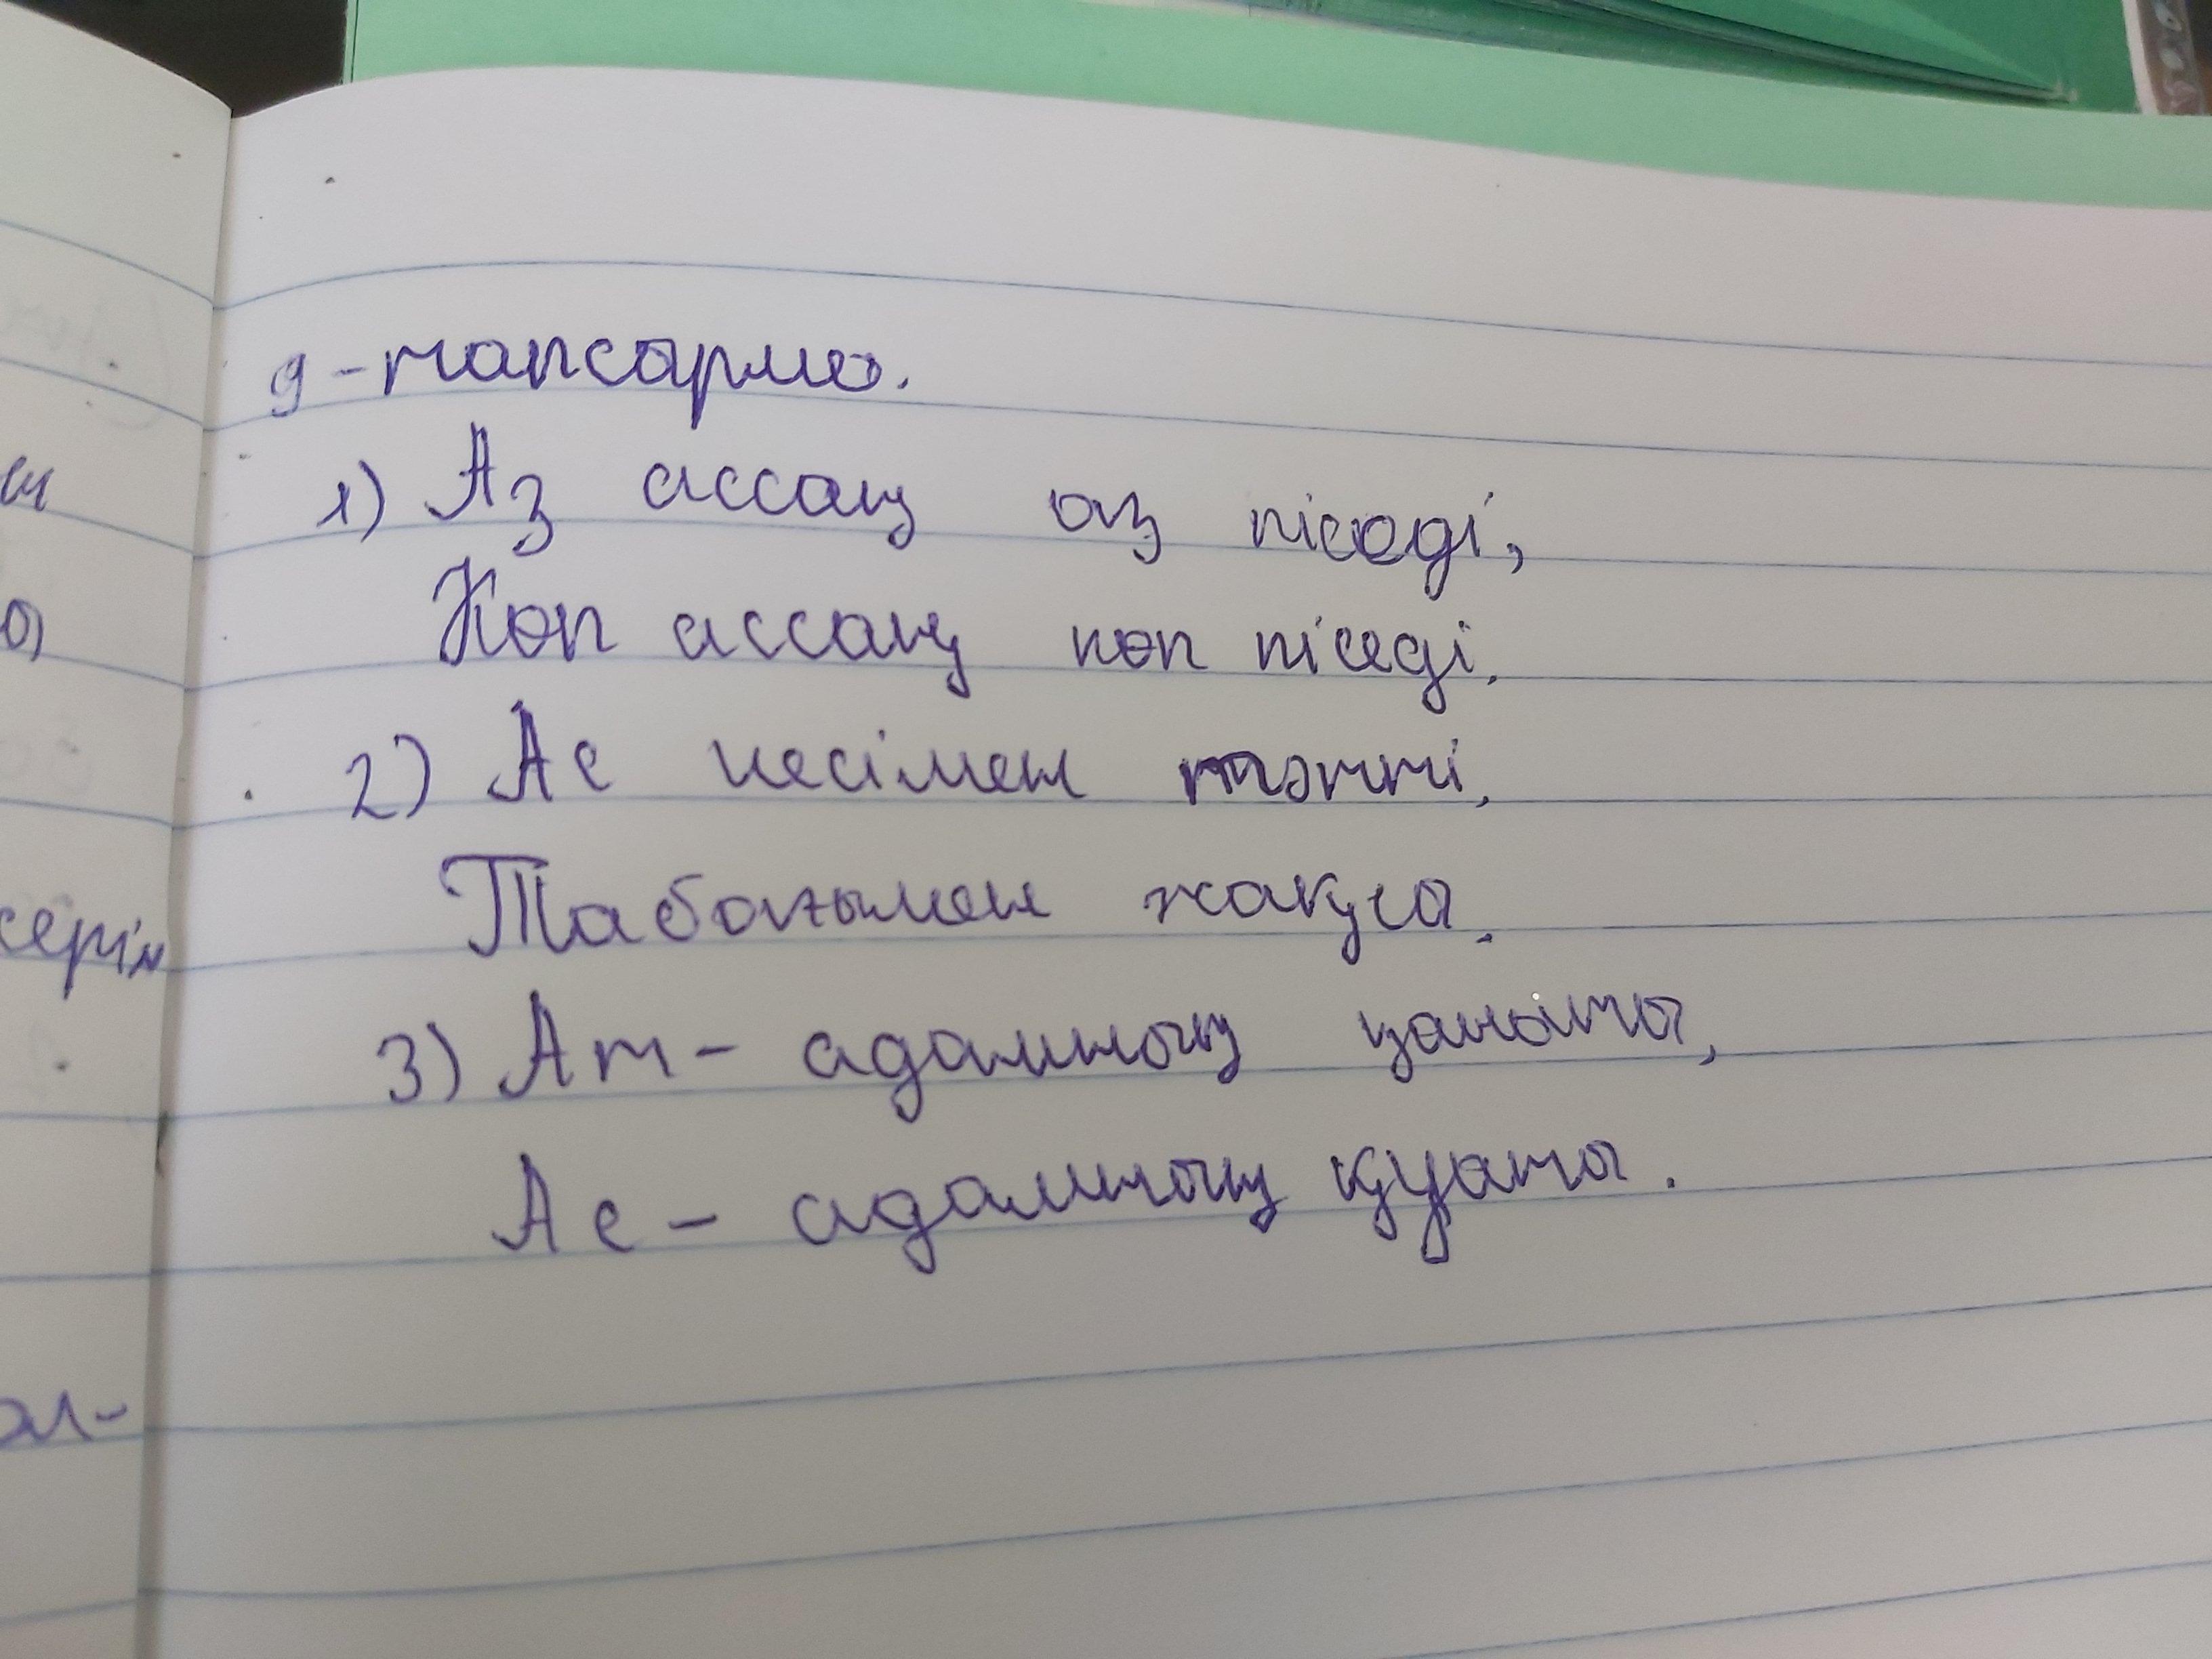 9-тапсырма.
1) Аз ассаң аз піседі,
Көп ассаң көп піседі.
2) Ас иесімен тәтті,
Табағымен жақсы.
3) Ат - адамның қанаты,
Ас - адамның қуаты.